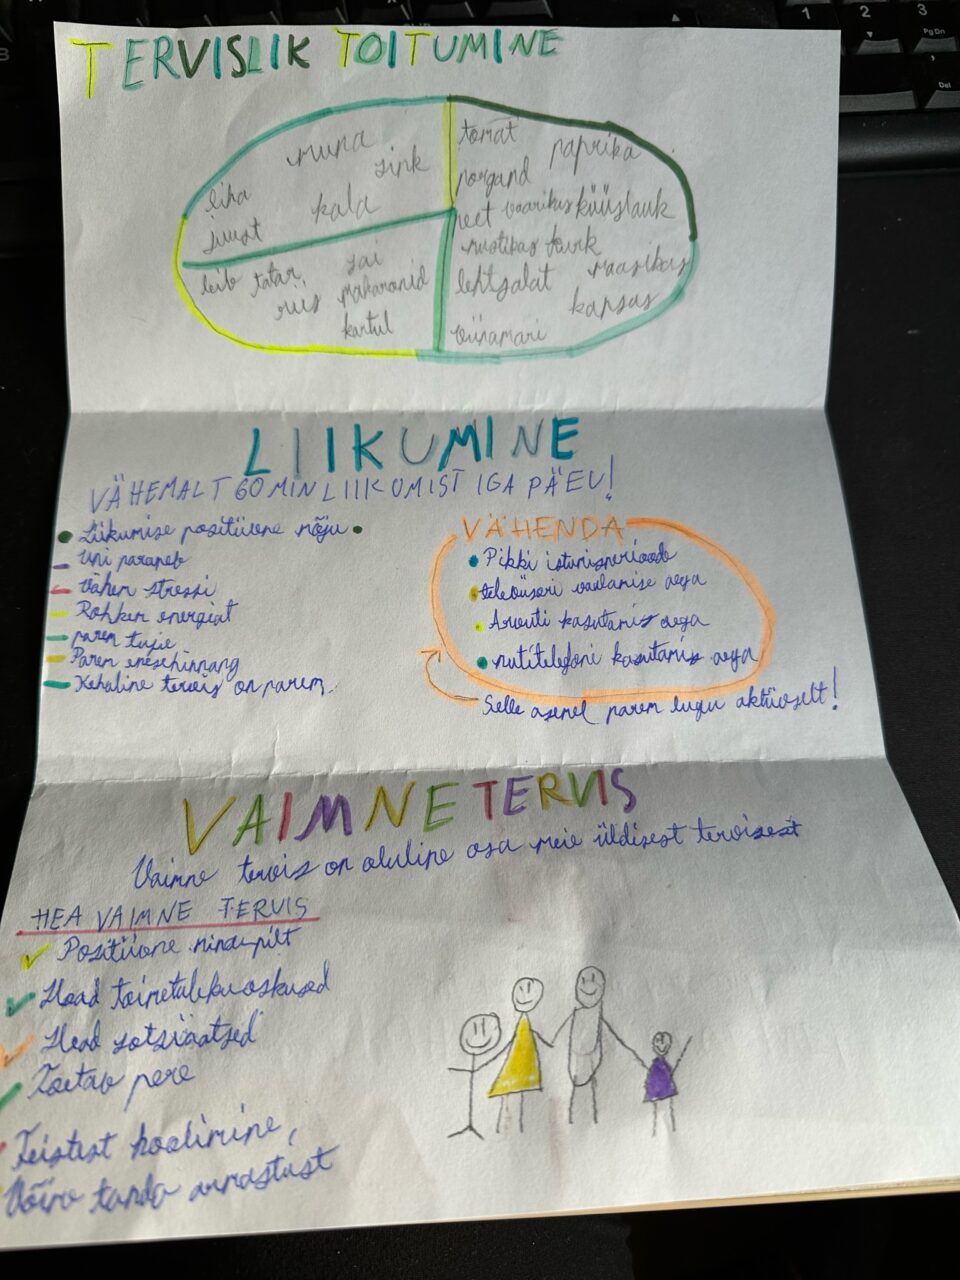 TERVISLIK TOITUMINE
muna
sink
liha
kala
juust
tomat
paprika
porgand
peet vaarikas küüslauk
mustikas kurk
maasikas
lehtsalat
kapsas
viinamari
leib tatar
sai
riis
makaronid
kartul
LIIKUMINE
VÄHEMALT 60 MIN LIIKUMIST IGA PÄEV!
Liikumise positiivne mõju
Uni paraneb
Vähem stressi
Rohkem energiat
parem tuju
Parem enesehinnang
Kehaline tervis on parem.
VÄHENDA
Pikki istumisperioode
televiisori vaatamise aega
Arvuti kasutamis aega
nutitelefoni kasutamis aega
Selle asemel parem liigu aktiivselt!
VAIMNE TERVIS
Vaimne tervis on oluline osa meie üldisest tervisest
HEA VAIMNE TERVIS
Positiivne minapilt
Head toimetulekuoskused
Head
Toetav pere
Teistest hoolimine,
Võiro tanda armastust